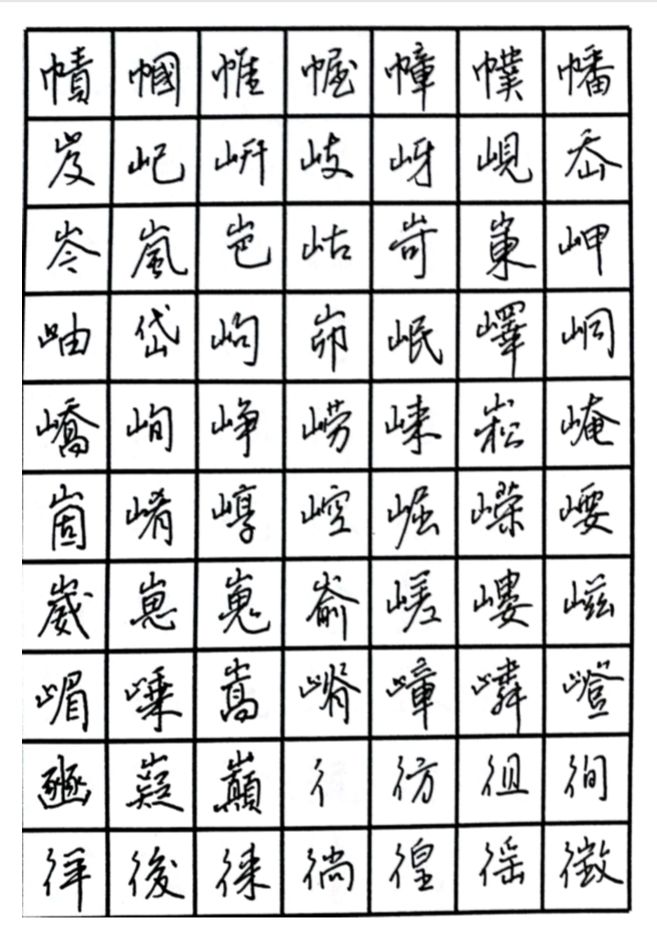 幘幗帷幄幛幞幡
岌屺岍岐岈峴岙
岑嵐岜岵岢崬岬
岫岱岣峁岷嶧峒
嶠峋崢嶗崍崧崦
崮崤崞崆崛嶸崾
崴崽嵬嵛嵯嶁嵫
嵋嵊嵩嵴嶂嶙嶝
豳嶷巔彳彷徂徇
徉後徠徜徨徭徵